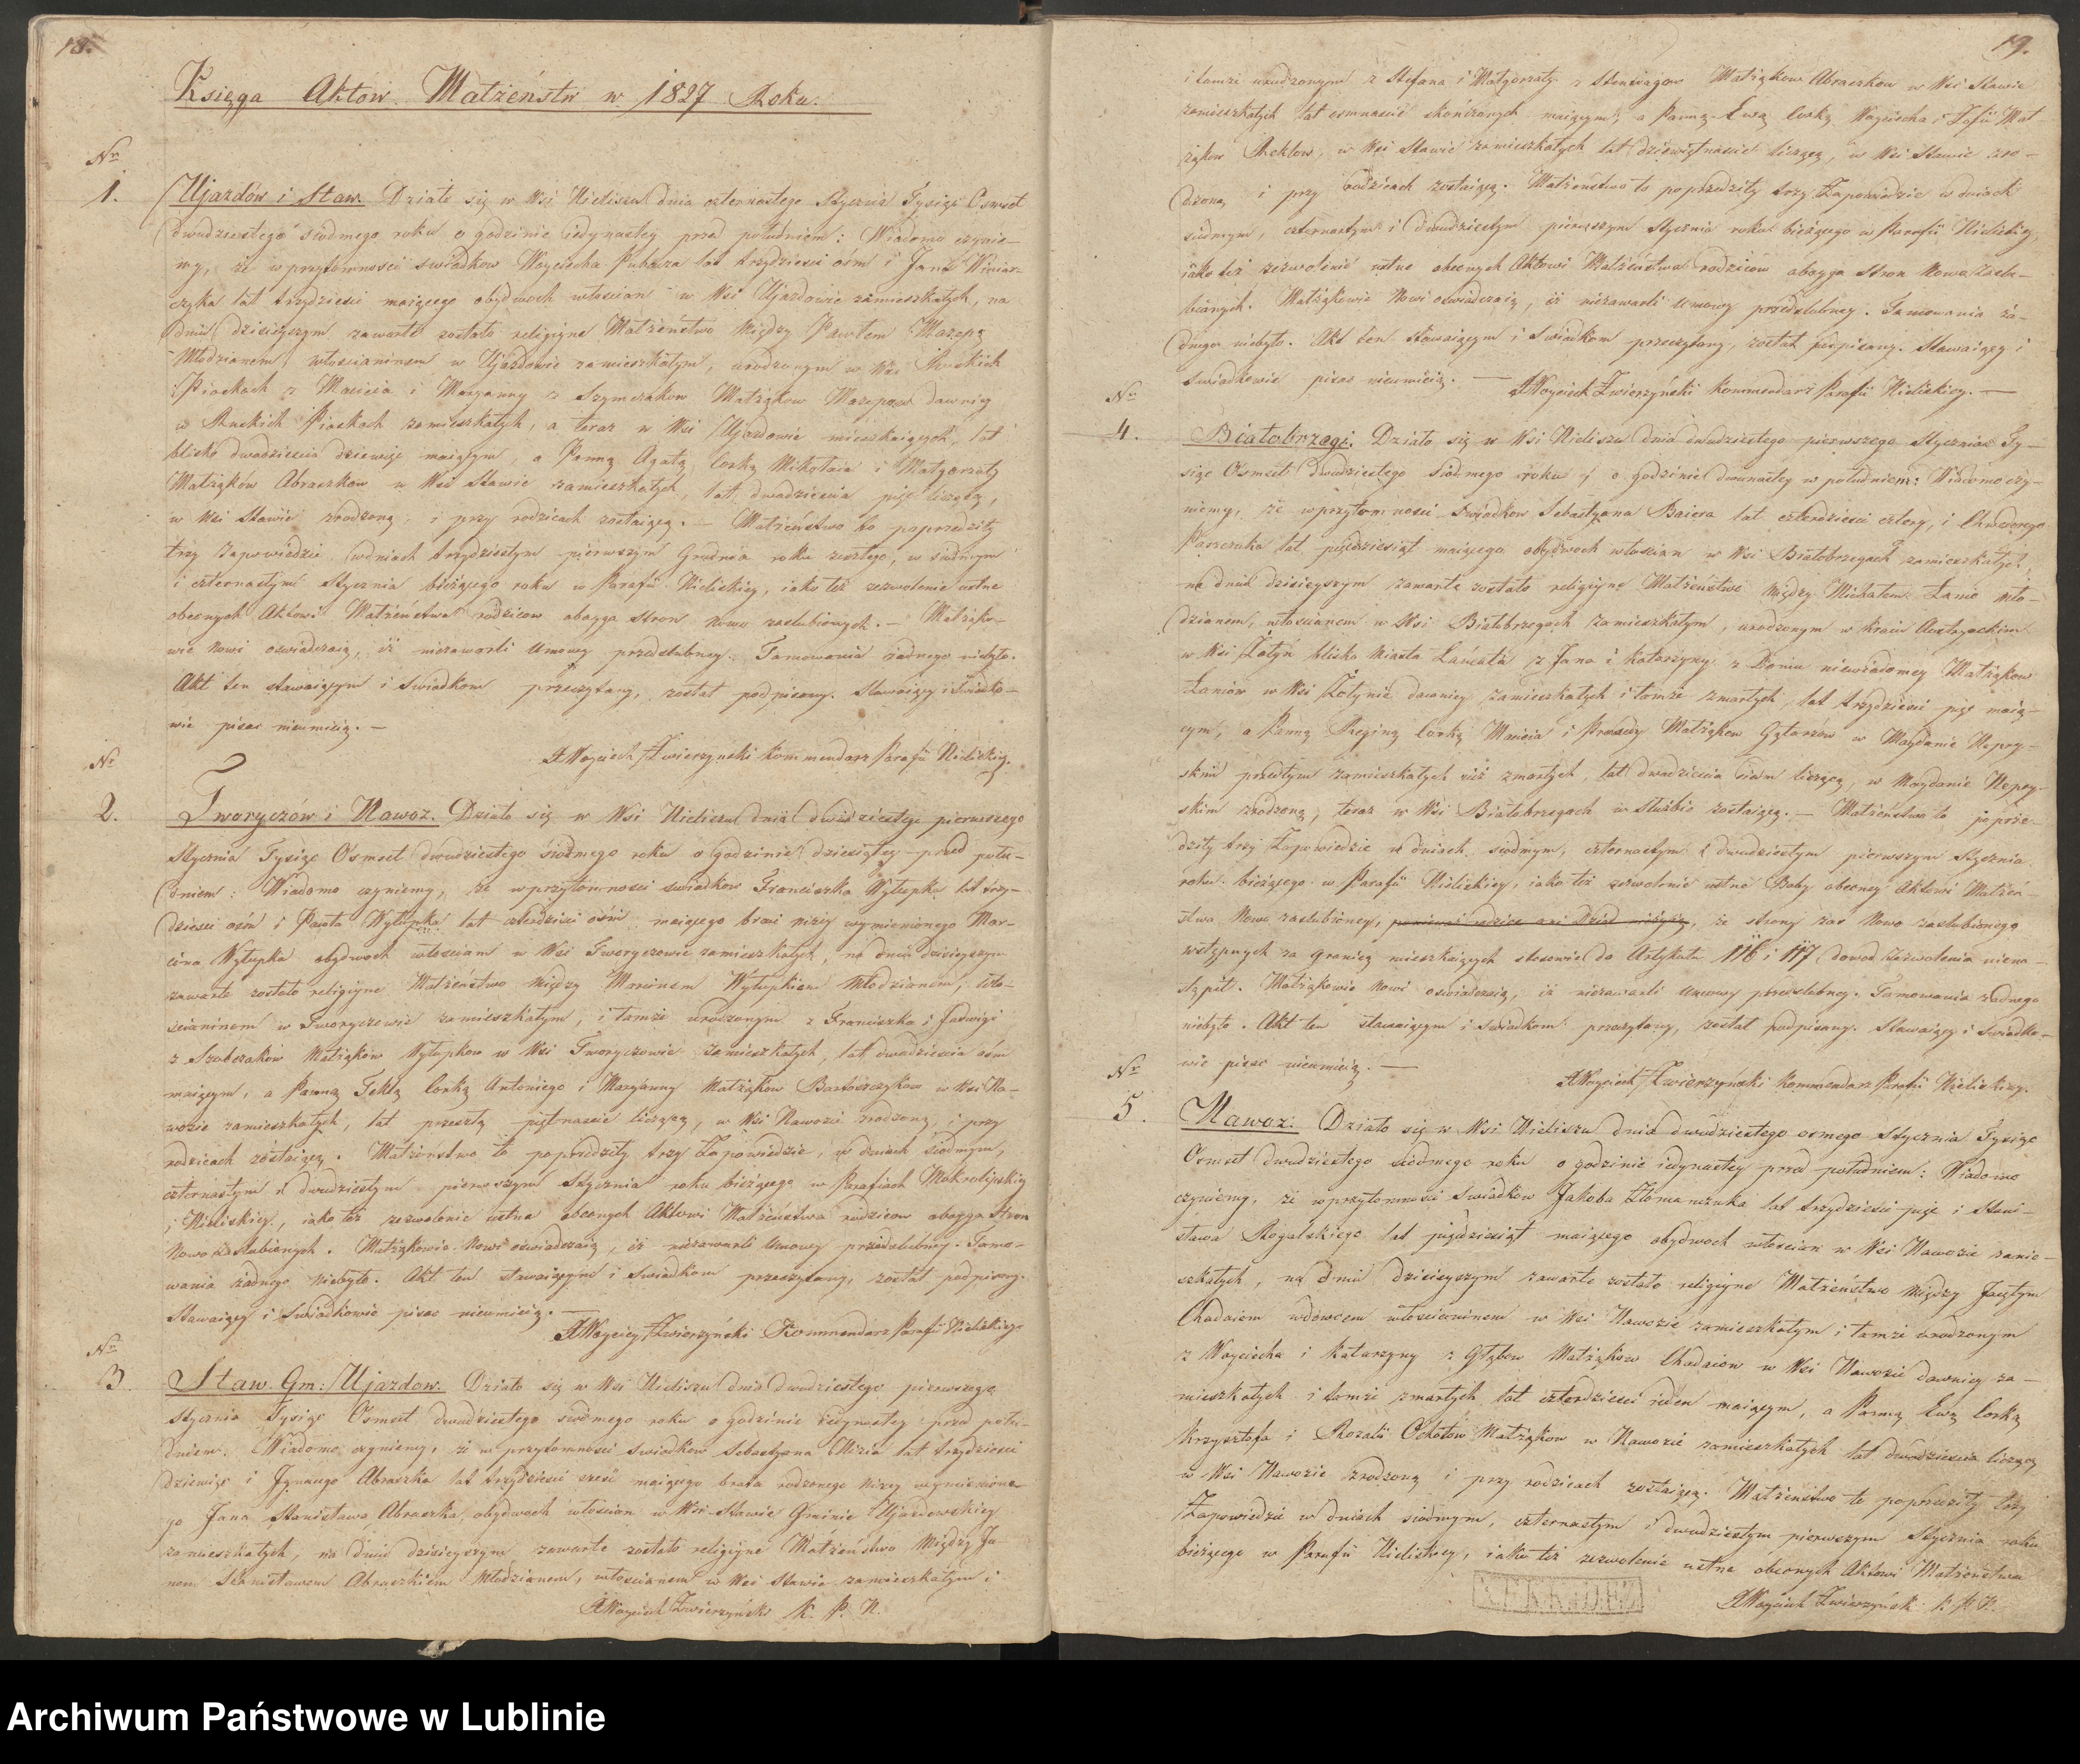 18.
Księga Aktow Małżeństw w 1827 Roku.
Nr
1. Ujazdów i Staw. Działo się w Wsi Nieliszu dnia czternastego Stycznia Tysiąc Osmset
dwudziestego siodmego roku o godzinie iedynastey przed południem: Wiadomo czynie-
my, że w przytomnosci swiadkow Woyciecha lat trzydziesci osm i Jana Winiar-
czyka lat trzydziesci maiącego obydwoch włoscian w Wsi Ujazdowie zamieszkałych, na
dniu dzisieyszym zawarte zostało religiyne Małżeństwo między Pawłem Mazepą
Młodzianem, włoscianinem w Ujazdowie zamieszkałym, urodzonym w Wsi Ruskich
Piaskach z Macieia i Maryanny z Szymczakow Małżąkow Mazepow dawniey
w Ruskich Piaskach zamieszkałych, a teraz w Wsi Ujazdowie mieszkaiących, lat
blisko dwadziescia dziewięć maiącym, a Panną Agatą corką Mikołaia i Małgorzaty
Małżąków Abraszkow w Wsi Stawie zamieszkałych, lat dwadziescia pięć liczącą,
w Wsi Stawie zrodzoną, i przy rodzicach zostaiącą. — Małżeństwo to poprzedziły
trzy zapowiedzie w dniach trzydziestym pierwszym Grudnia roku zeszłego, w siodmym
i czternastym Stycznia bieżącego roku w Parafii Nieliskiey, iako też zezwolenie ustne
obecnych Aktowi Małżeństwa rodzicow oboyga stron nowo zaslubionych. — Małżąko-
wie nowi oswiadczaią, iż niezawarli umowy przedslubney. Tamowania żadnego niebyło.
Akt ten stawaiącym i swiadkom przeczytany, został podpisany. Stawaiący i Swiadko-
wie pisac nieumieią. —
X Woyciech Zwierzyński kommendarz Parafii Nieliskiey.
Nr
2. Tworyczów i Nawoz. Działo się w Wsi Nieliszu dnia dwudziestego pierwszego
Stycznia Tysiąc Osmset dwudziestego siodmego roku o godzinie dziesiątey przed połu-
dniem: Wiadomo czyniemy, że w przytomnosci swiadkow Franciszka Wyłupka lat trzy-
dziesci osm i Pawła Wyłupka lat czterdziesci osm maiącego braci niżey wymienionego Mar-
cina Wyłupka obydwoch włoscian w Wsi Tworyczowie zamieszkałych, na dniu dzisieyszym
zawarte zostało religiyne Małżeństwo między Marcinem Wyłupkiem Młodzianem, wło-
scianinem w Tworyczowie zamieszkałym, i tamże urodzonym z Franciszka i Jadwigi
z Szabczaków Małżąków Wyłupkow w Wsi Tworyczowie zamieszkałych, lat dwadziescia osm
maiącym, a Panną Teklą corką Antoniego i Maryanny Małżąkow Bartoszczykow w Wsi Na-
wozie zamieszkałych, lat przeszło piętnascie liczącą, w Wsi Nawozie zrodzoną, i przy
rodzicach zostaiącą. Małżeństwo to poprzedziły trzy Zapowiedzie, w dniach siodmym,
czternastym i dwudziestym pierwszym Stycznia roku bieżącego w Parafiach Mokrolipskiey
i Nieliskiey, iako też zezwolenie ustne obecnych Aktowi Małżeństwa rodzicow oboyga Stron
Nowo zaslubionych. Małżąkowie Nowi oswiadczaią, iż niezawarli umowy przedslubney. Tamo-
wania żadnego niebyło. Akt ten stawaiącym i swiadkom przeczytany, został podpisany.
Stawaiący i Swiadkowie pisac nieumieią. —
X Woyciech Zwierzyński Kommendarz Parafii Nieliskiey
Nr
3. Staw Gm: Ujazdow. Działo się w Wsi Nieliszu dnia dwudziestego pierwszego
Stycznia Tysiąc Osmset dwudziestego siodmego roku o godzinie iedynastey przed połu-
dniem. Wiadomo czyniemy, że w przytomnosci swiadkow Sebastyana lat trzydziesci
dziewięć i Ignacego Abraszka lat trzydziesci szesć maiącego brata rodzonego niżey wymienione-
go Jana Stanisława Abraszka obydwoch włoscian w Wsi Stawie Gminie Ujazdowskiey
zamieszkałych, na dniu dzisieyszym zawarte zostało religiyne Małżeństwo między Ja-
nem Stanisławem Abraszkiem Młodzianem, włoscianem w Wsi Stawie zamieszkałym i
X Woyciech Zwierzyński K. P. N.
19.
i tamże urodzonym z Stefana i Małgorzaty z Małżąkow Abraszkow w Wsi Stawie
zamieszkałych lat osmnascie skończonych maiącym; a Panną Ewą corką Woyciecha i Zofii Mał-
żąkow Reklow, w Wsi Stawie zamieszkałych lat dziewiętnascie liczącą, w Wsi Stawie zro-
dzoną i przy rodzicach zostaiącą. Małżenstwo to poprzedziły trzy Zapowiedzie w dniach
siodmym, czternastym i dwudziestym pierwszym Stycznia roku bieżącego w Parafii Nieliskiey,
iako też zezwolenie ustne obecnych Aktowi Małżeństwa rodzicow oboyga stron Nowo zaslu-
bionych. Małżąkowie Nowi oswiadczaią, iż niezawarli umowy przedslubney. Tamowania ża-
dnego niebyło. Akt ten stawaiącym i swiadkom przeczytany, został podpisany. Stawaiący i
Swiadkowie pisac nieumieią. —
X Woyciech Zwierzyński kommendarz Parafii Nieliskiey. —
Nr
4. Białobrzegi. Działo się w Wsi Nieliszu dnia dwudziestego pierwszego Stycznia Ty-
siąc Osmset dwudziestego siodmego roku o godzinie dwunastey w południem: Wiadomo czy-
niemy, że w przytomnosci swiadkow Sebastyana Baiera lat czterdziesci cztery, i
lat pięćdziesiąt maiącego obydwoch włoscian w Wsi Białobrzegach zamieszkałych,
na dniu dzisieyszym zawarte zostało religiyne Małżeństwo między Michałem Łanio mło-
dzianem, włoscianem w Wsi Białobrzegach zamieszkałym, urodzonym w kraiu Austryackim
w Wsi Żołyń blisko Miasta Łańcuta z Jana i Katarzyny z Domu niewiadomey Małżąkow
Łaniow w Wsi Żołynie dawniey zamieszkałych i tamże zmarłych, lat trzydziesci pięć maią-
cym, a Panną Reginą corką Macieia i Małżąkow w Maydanie Nepry-
skim przedtym zamieszkałych już zmarłych, lat dwadziescia siedm liczącą, w Maydanie Nepry-
skim zrodzoną, teraz w Wsi Białobrzegach w służbie zostaiącą. — Małżeństwo to poprze-
dziły trzy Zapowiedzie w dniach siodmym, czternastym i dwudziestym pierwszym Stycznia
roku bieżącego w Parafii Nieliskiey, iako też zezwolenie ustne Baby obecney Aktowi Małżeń-
stwa Nowo zaslubioney, ponieważ rodzice ani Dziad nieżyją, ze strony zas Nowo zaslubionego
wstępnych za granicą mieszkaiących stosownie do Artykułu 116 i 117 dowod zezwolenia niena-
stąpił. Małżąkowie Nowi oswiadczaią, iż niezawarli umowy przedslubney. Tamowania żadnego
niebyło. Akt ten stawaiącym i swiadkom przeczytany, został podpisany. Stawaiący i Swiadko-
wie pisac nieumieią. —
X Woyciech Zwierzyński Kommendarz Parafii Nieliskiey.
Nr
5. Nawoz. Działo się w Wsi Nieliszu dnia dwudziestego osmego Stycznia Tysiąc
Osmset dwudziestego siodmego roku o godzinie iedynastey przed południem: Wiadomo
czyniemy, że w przytomnosci Swiadkow Jakoba Złomanczuka lat trzydziesci pięć i Stani-
sława Rogalskiego lat pięćdziesiąt maiącego obydwoch włoscian w Wsi Nawozie zamie-
szkałych, na dniu dzisieyszym zawarte zostało religiyne Małżeństwo między Jacętym
Chadaiem wdowcem włoscianinem w Wsi Nawozie zamieszkałym i tamże urodzonym
z Woyciecha i Katarzyny z Głąbow Małżąkow Chadaiow w Wsi Nawozie dawniey za-
mieszkałych i tamże zmarłych lat czterdziesci ieden maiącym, a Panną Ewą corką
Krzysztofa i Rozalii Ochotow Małżąkow w Nawozie zamieszkałych lat dwadziescia liczącą
w Wsi Nawozie zrodzoną i przy rodzicach zostaiącą. Małżeństwo to poprzedziły trzy
Zapowiedzie w dniach siodmym, czternastym i dwudziestym pierwszym Stycznia roku
bieżącego w Parafii Nieliskiey, iako też zezwolenie ustne obecnych Aktowi Małżeństwa
X Woyciech Zwierzyński K. P. N.
Archiwum Państwowe w Lublinie